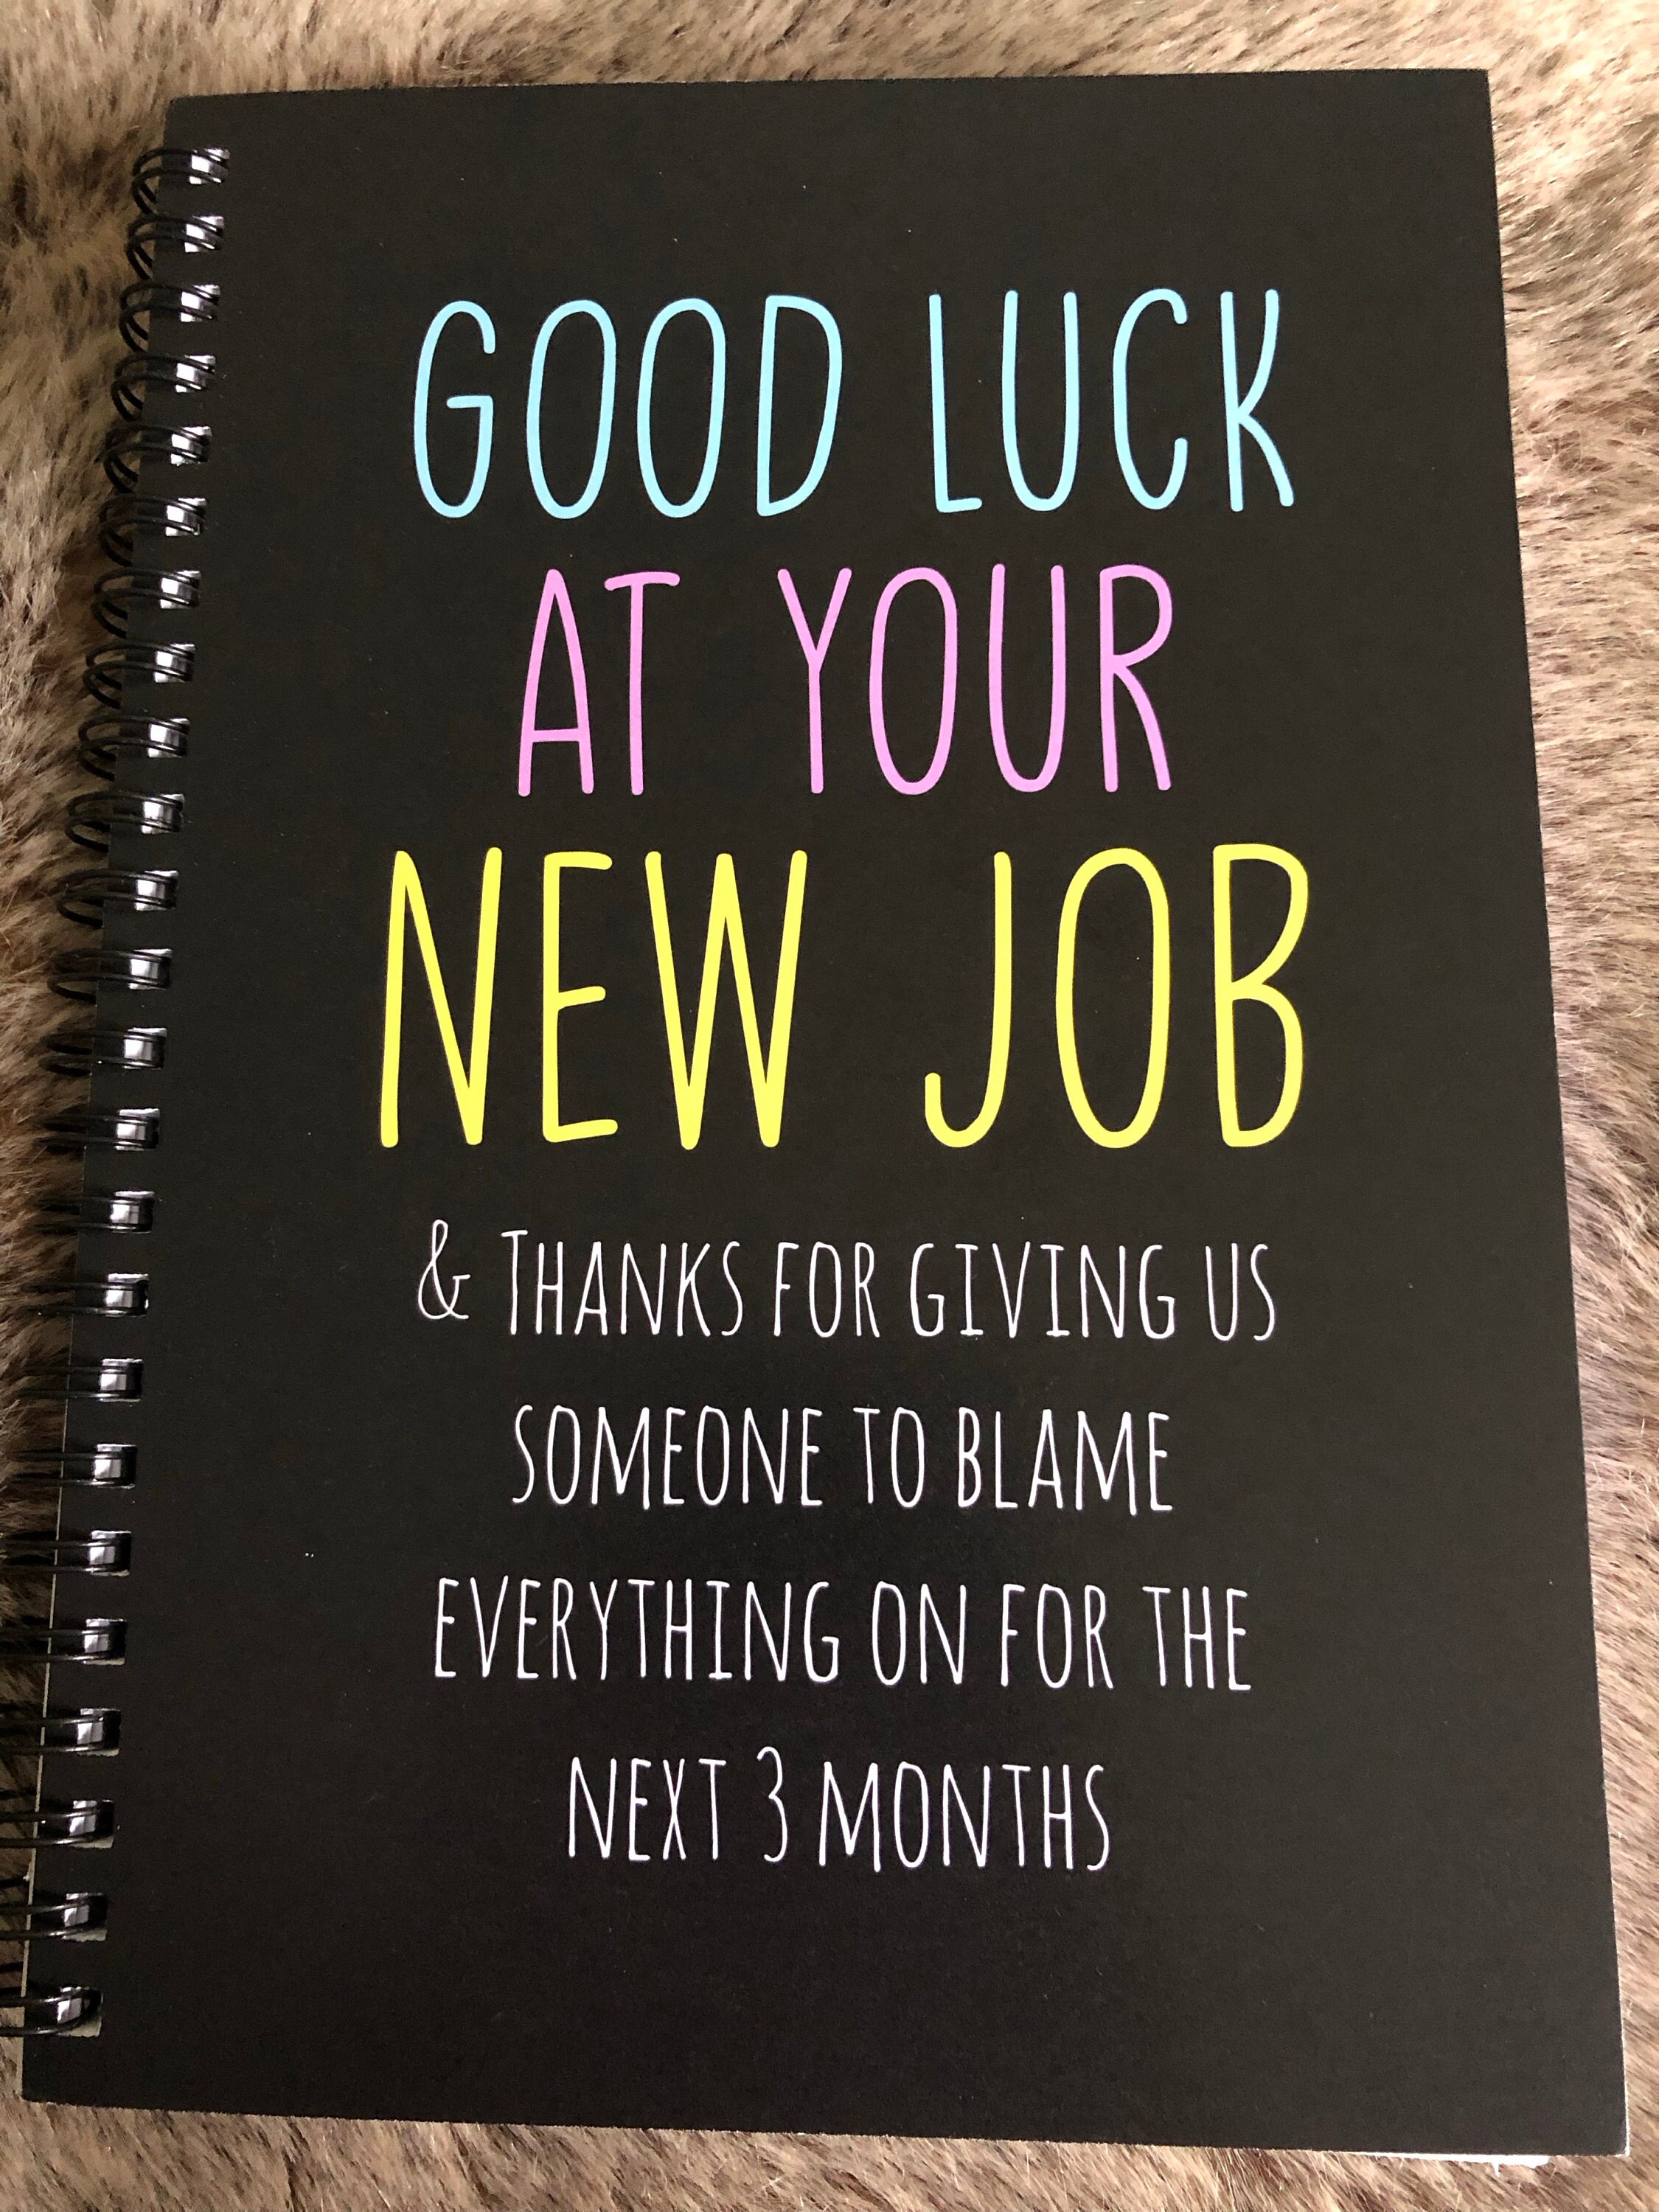 GOOD LUCK
AT YOUR
NEW JOB
& THANKS FOR GIVING US
SOMEONE TO BLAME
EVERYTHING ON FOR THE
NEXT 3 MONTHS